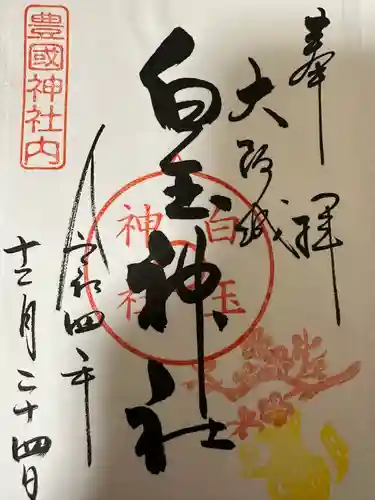 奉拝
大阪城
白玉神社
白玉
神社
令和四年
十二月二十四日
豊國神社内